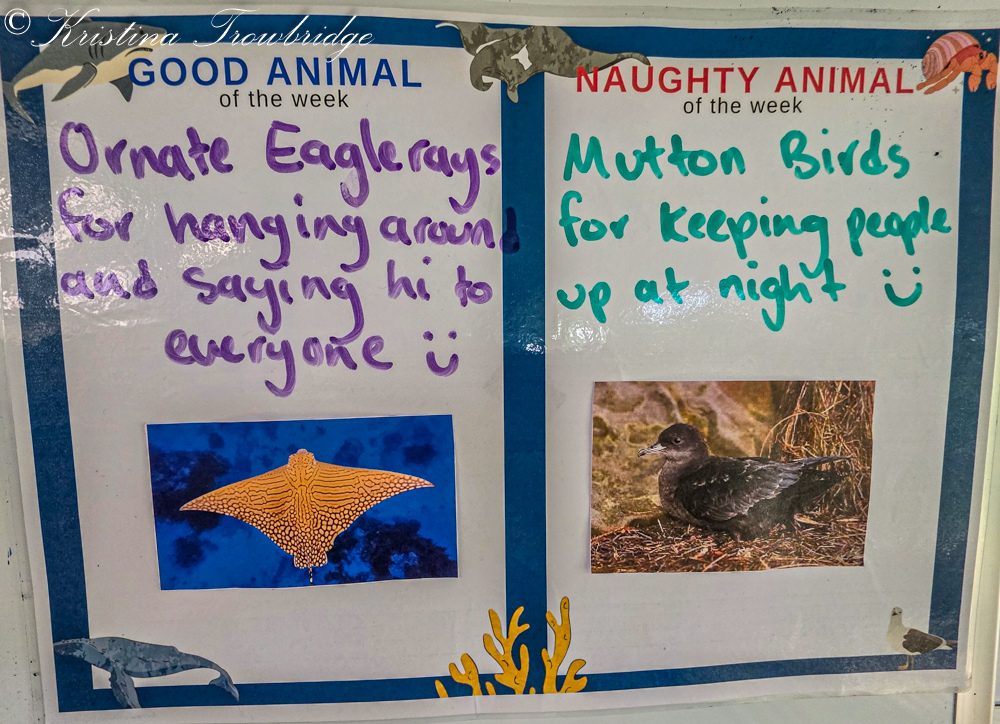 © Kristina Trowbridge
GOOD ANIMAL
of the week
Ornate Eaglerays
for hanging around
and saying hi to
everyone
NAUGHTY ANIMAL
of the week
Mutton Birds
for keeping people
up at night